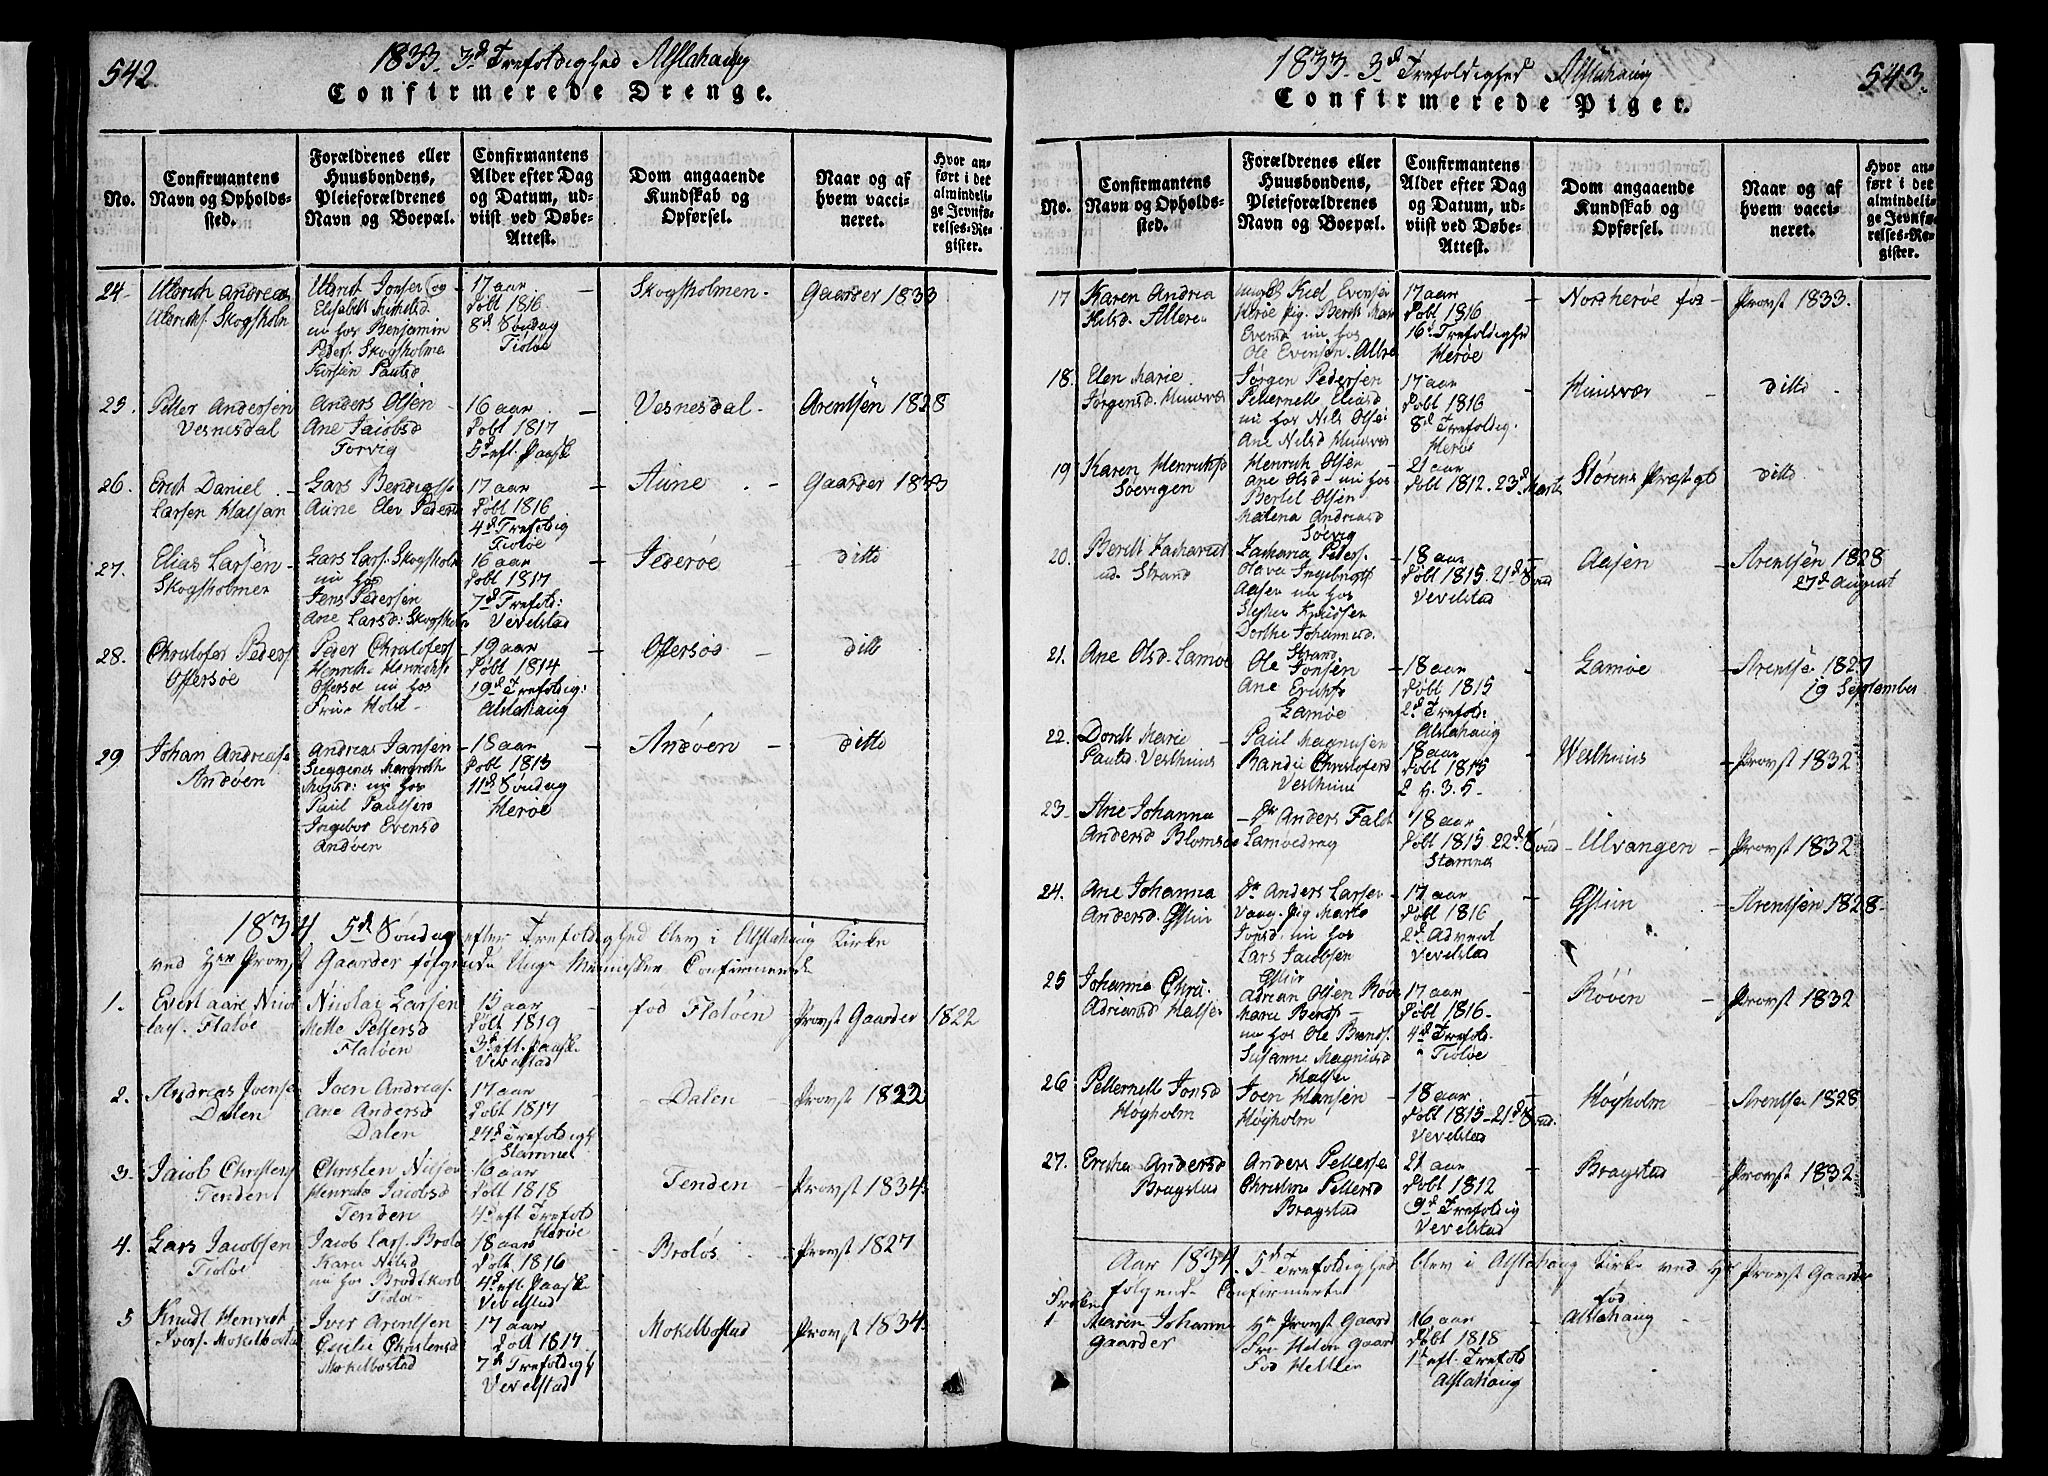 542.
1833. 3d Trefoldighed Alstahaug
Confirmerede Drenge.
No.
Confirmantens
Navn og Opholds-
sted.
Forældrenes eller
Huusbondens,
Pleieforældrenes
Navn og Boepæl.
Confirmantens
Alder efter Dag
og Datum, ud-
viist ved Døbe-
Attest.
Dom angaaende
Kundskab og
Opførsel.
Naar og af
hvem vacci-
neret.
Hvor an-
ført i det
almindeli-
ge Jevnfø-
relses-Re-
gister.
24
Ulrich Andreas
Ulrichs. Skogsholm
Ulrich Jonsen og
Elisabeth Mikelsd
nu hos Benjamin
Peders. Skogsholme
Kirsten Paulsd
17 aar
døbt 1816
8d Søndag
Tiøtøe
Skogsholmen
Gaarder 1833
25.
Petter Andersen
Vesnesdal
Anders Olsen
Ane Jacobsd
Forvig
16 aar
Døbt 1817
5d eft. Paaske
Vesnesdal
Arentsen 1828
26.
Erich Daniel
Larsen Halsan
Lars Bendigts
Aune Elen Pedersd
17 aar
Døbt 1816
4d Trefoldig
Tiøtøe
Aune
Gaarder 1833
27.
Elias Larsen
Skogsholmen
Lars Lars. Skogsholm
nu hos
Jens Pedersen
Ane Larsd: Skogsholm
16 aar
Døbt 1817
7d Trefold:
Vevelstad
Federøe
ditto
28.
Christofer Peders
Offersøe
Peder Christofers
Henrich Henrichs
Offersøe nu hos
Trine Holst
19 aar
Døbt 1814
19d Trefoldig:
Alstahaug
Offersøe
ditto
29
Johan Andreass
Andøen
Andreas Jansen
Siggenes Margreth
Matsd: nu hos
Paul Paulsen
Ingebor Evensd
Andøen
18 aar
Døbt 1815
11d Søndag
Herøe
Andøen
ditto
1834 5d Søndag efter Trefoldighed blev i Alstahaug Kirke
ved Hrr Provst Gaarder følgende Unge Mennesker Confirmerede
1.
Evert aare Nico
lais. Flatøe
Nicolai Larsen
Mette Pettersd
Flatøen
15 aar
Døbt 1819
3d eft. Paaske
Vevelstad
fød Flatøen
Provst Gaarder 1822
2.
Andreas Joense
Dalen
Joen Andreas.
Ane Andersd
Dalen
17 aar
Døbt 1817
24d Trefoldigh
Stamnes
Dalen
Provst 1822
3.
Jacob Christens
Tenden
Christen Nilsen
Henrich Jacobsd
Tenden
16 aar
Døbt 1818
4d eft Trefold
Herøe
Tenden
Provst 1834
4.
Lars Jacobsen
Tiøtøe
Jacob Lars. Brotø
Karen Nilsd
nu hos Brodtkorb
Tiøtøe
18 aar
Døbt 1816
4d eft. Paaske
Vevelstad
Brotøs
Provst 1827
5
Knudt Henrich
Ivers. Mokelbostad
Iver Arentsen
Cecilie Christensd
Mokelbostad
17 aar
Døbt 1817
7d Trefoldigh
Vevelstad
Mokelbostad
Provst 1834
1833. 3d Trefoldighed Alstahaug
543.
Confirmerede Piger.
No.
Confirmantens
Navn og Opholds-
sted.
Forældrenes eller
Huusbondens,
Pleieforældrenes
Navn og Boepæl.
Confirmantens
Alder efter Dag
og Datum, ud-
viist ved Døbe-
Attest.
Dom angaaende
Kundskab og
Opførsel.
Naar og af
hvem vacci-
neret.
Hvor an-
ført i det
almindeli-
ge Jevnfø-
relses-Re-
gister.
17
Karen Andrea
Kilsd. Alteren
ungk Kiel Evensen
Herøe Pig. Berith Mari
Evensd nu hos
Ole Evensen. Altre
17 aar
Døbt 1816
16d Trefoldighe
Herøe
Nordherøe
Provst 1833.
18.
Elen Marie
Jørgensd. Huusvær
Jørgen Pedersen
Petternelle Eliasd
nu hos Nils Olsen
Ane Nilsd Huusvær
17 aar
Døbt 1816
8d Trefoldig.
Herøe
Huusvær
ditto
19
Karen Henriksd
Søevigen
Henrich Olsen
Ane Olsd nu hos
Bertel Olsen
Malena Andreasd
Søevig
21 aar
Døbt 1812. 23d Marts
Størens Præstgb
ditto
20.
Berith Zacharias
d. Strand
Zacharia Peders.
Olava Ingebrigts
Aasen nu hos
Steffen Knudsen
Dorthe Johannesd.
Strand
18 aar
Døbt 1815. 21d Sønd
Vevelstad
Aasen
Arentsen 1828
27d August
21.
Ane Olsd. Lamøe
Ole Jonsen
Ane Eriks
Lamøe
18 aar
Døbt 1815
2d Trefold:
Alstahaug
Lamøe
Arentsen 1827
19 September
22.
Dordt Marie
Paulsd. Vesthuus
Paul Magnusen
Randie Christofersd
Vesthuus
18 aar
Døbt 1815
2 H. 3. 5.
Vesthuus
Provst 1832
23.
Ane Johanna
Andersd Blomsøe
Anders Falch
Lamøedrag
18 aar
Døbt 1815. 22d Sønd
Stamnes
Ulvangen
Provst 1832
24.
Ane Johanna
Andersd. Estuin
Anders Larsen
Vaag. Pig Marte
Jonsd. nu hos
Lars Jacobsen
Estuin
17 aar
Døbt 1816
2d Advent
Vevelstad
Estuin
Arentsen 1828
25
Johanna Chri.
Adriansd Halsen
Adrian Olsen Røe
Maria Bends
nu hos Ole Brends.
Susanna Magnusd
Halsen
17 aar
Døbt 1816
4d Trefold.
i Tiøtøe
Røøen
Provst 1832
26
Petternelle Jonsd
Høgholm
Joen Hansen
Høgholm
18 aar
Døbt 1815 21d Sønd.
Vevelstad
Høgholm
Arentse 1828
27.
Erecha Andersd
Bragstad
Anders Petterse
Christina Pettersd
Bragstad
21 aar
Døbt 1812
9d Trefoldig
Vevelstad
Bragstad
Provst 1832
Aar 1834. 5d Trefoldighed blev i Alstahaug Kirke ved Hr Provst Gaarder
følgende Confirmerte
Frøken
1
Maren Johanne
Gaarder
Hr Provst Gaard
Fru Helene Gaar
Fød Heltzen
16 aar
Døbt 1818
1d eft. Trefold
Alstahaug
fød
Alstahaug